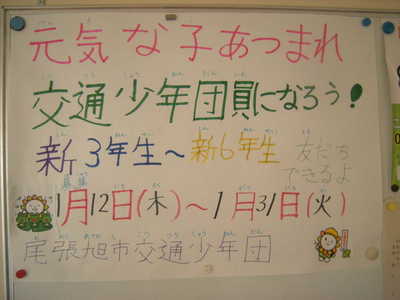 元気な子あつまれ
交通少年団員になろう!
新3年生~新6年生
友だちできるよ
募集
1月12日(木)~1月31日(火)
尾張旭市交通少年団